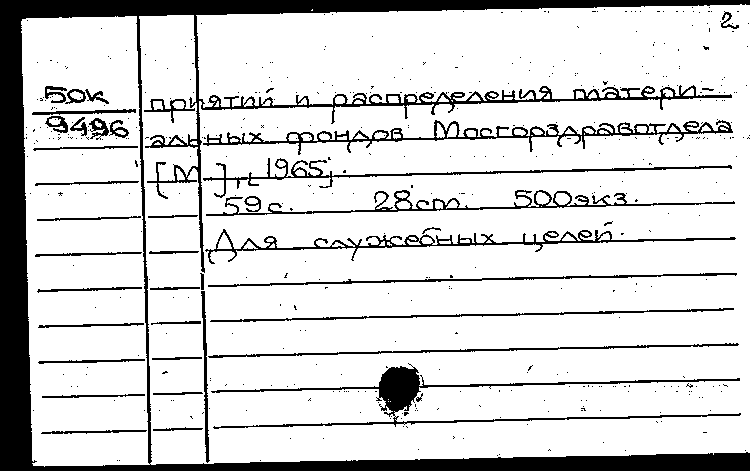 2
50к
9496
приятий и распределения матери-
альных фондов Мосгорздравотдела
[М], [1965].
59 с. 28см. 500экз.
Для служебных целей.